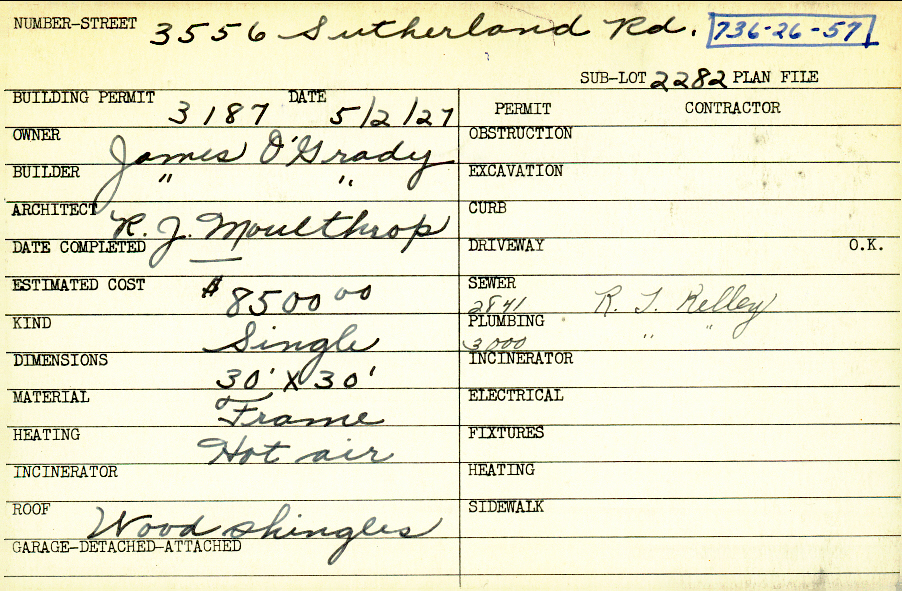 NUMBER-STREET 3556 Sutherland Rd. 736-26-57
SUB-LOT 2282 PLAN FILE
BUILDING PERMIT 3187 DATE 5/2/27
PERMIT CONTRACTOR
OWNER James O'Grady
OBSTRUCTION
BUILDER " "
EXCAVATION
ARCHITECT R. J. Moulthrop
CURB
DATE COMPLETED —
DRIVEWAY O.K.
ESTIMATED COST $8500 00
SEWER 2841 R. T. Kelley
KIND Single
PLUMBING 3000 " "
DIMENSIONS 30' X 30'
INCINERATOR
MATERIAL Frame
ELECTRICAL
HEATING Hot air
FIXTURES
INCINERATOR
HEATING
ROOF Wood shingles
SIDEWALK
GARAGE-DETACHED-ATTACHED